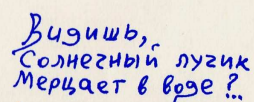 Видишь,
Солнечный лучик
Мерцает в воде?..